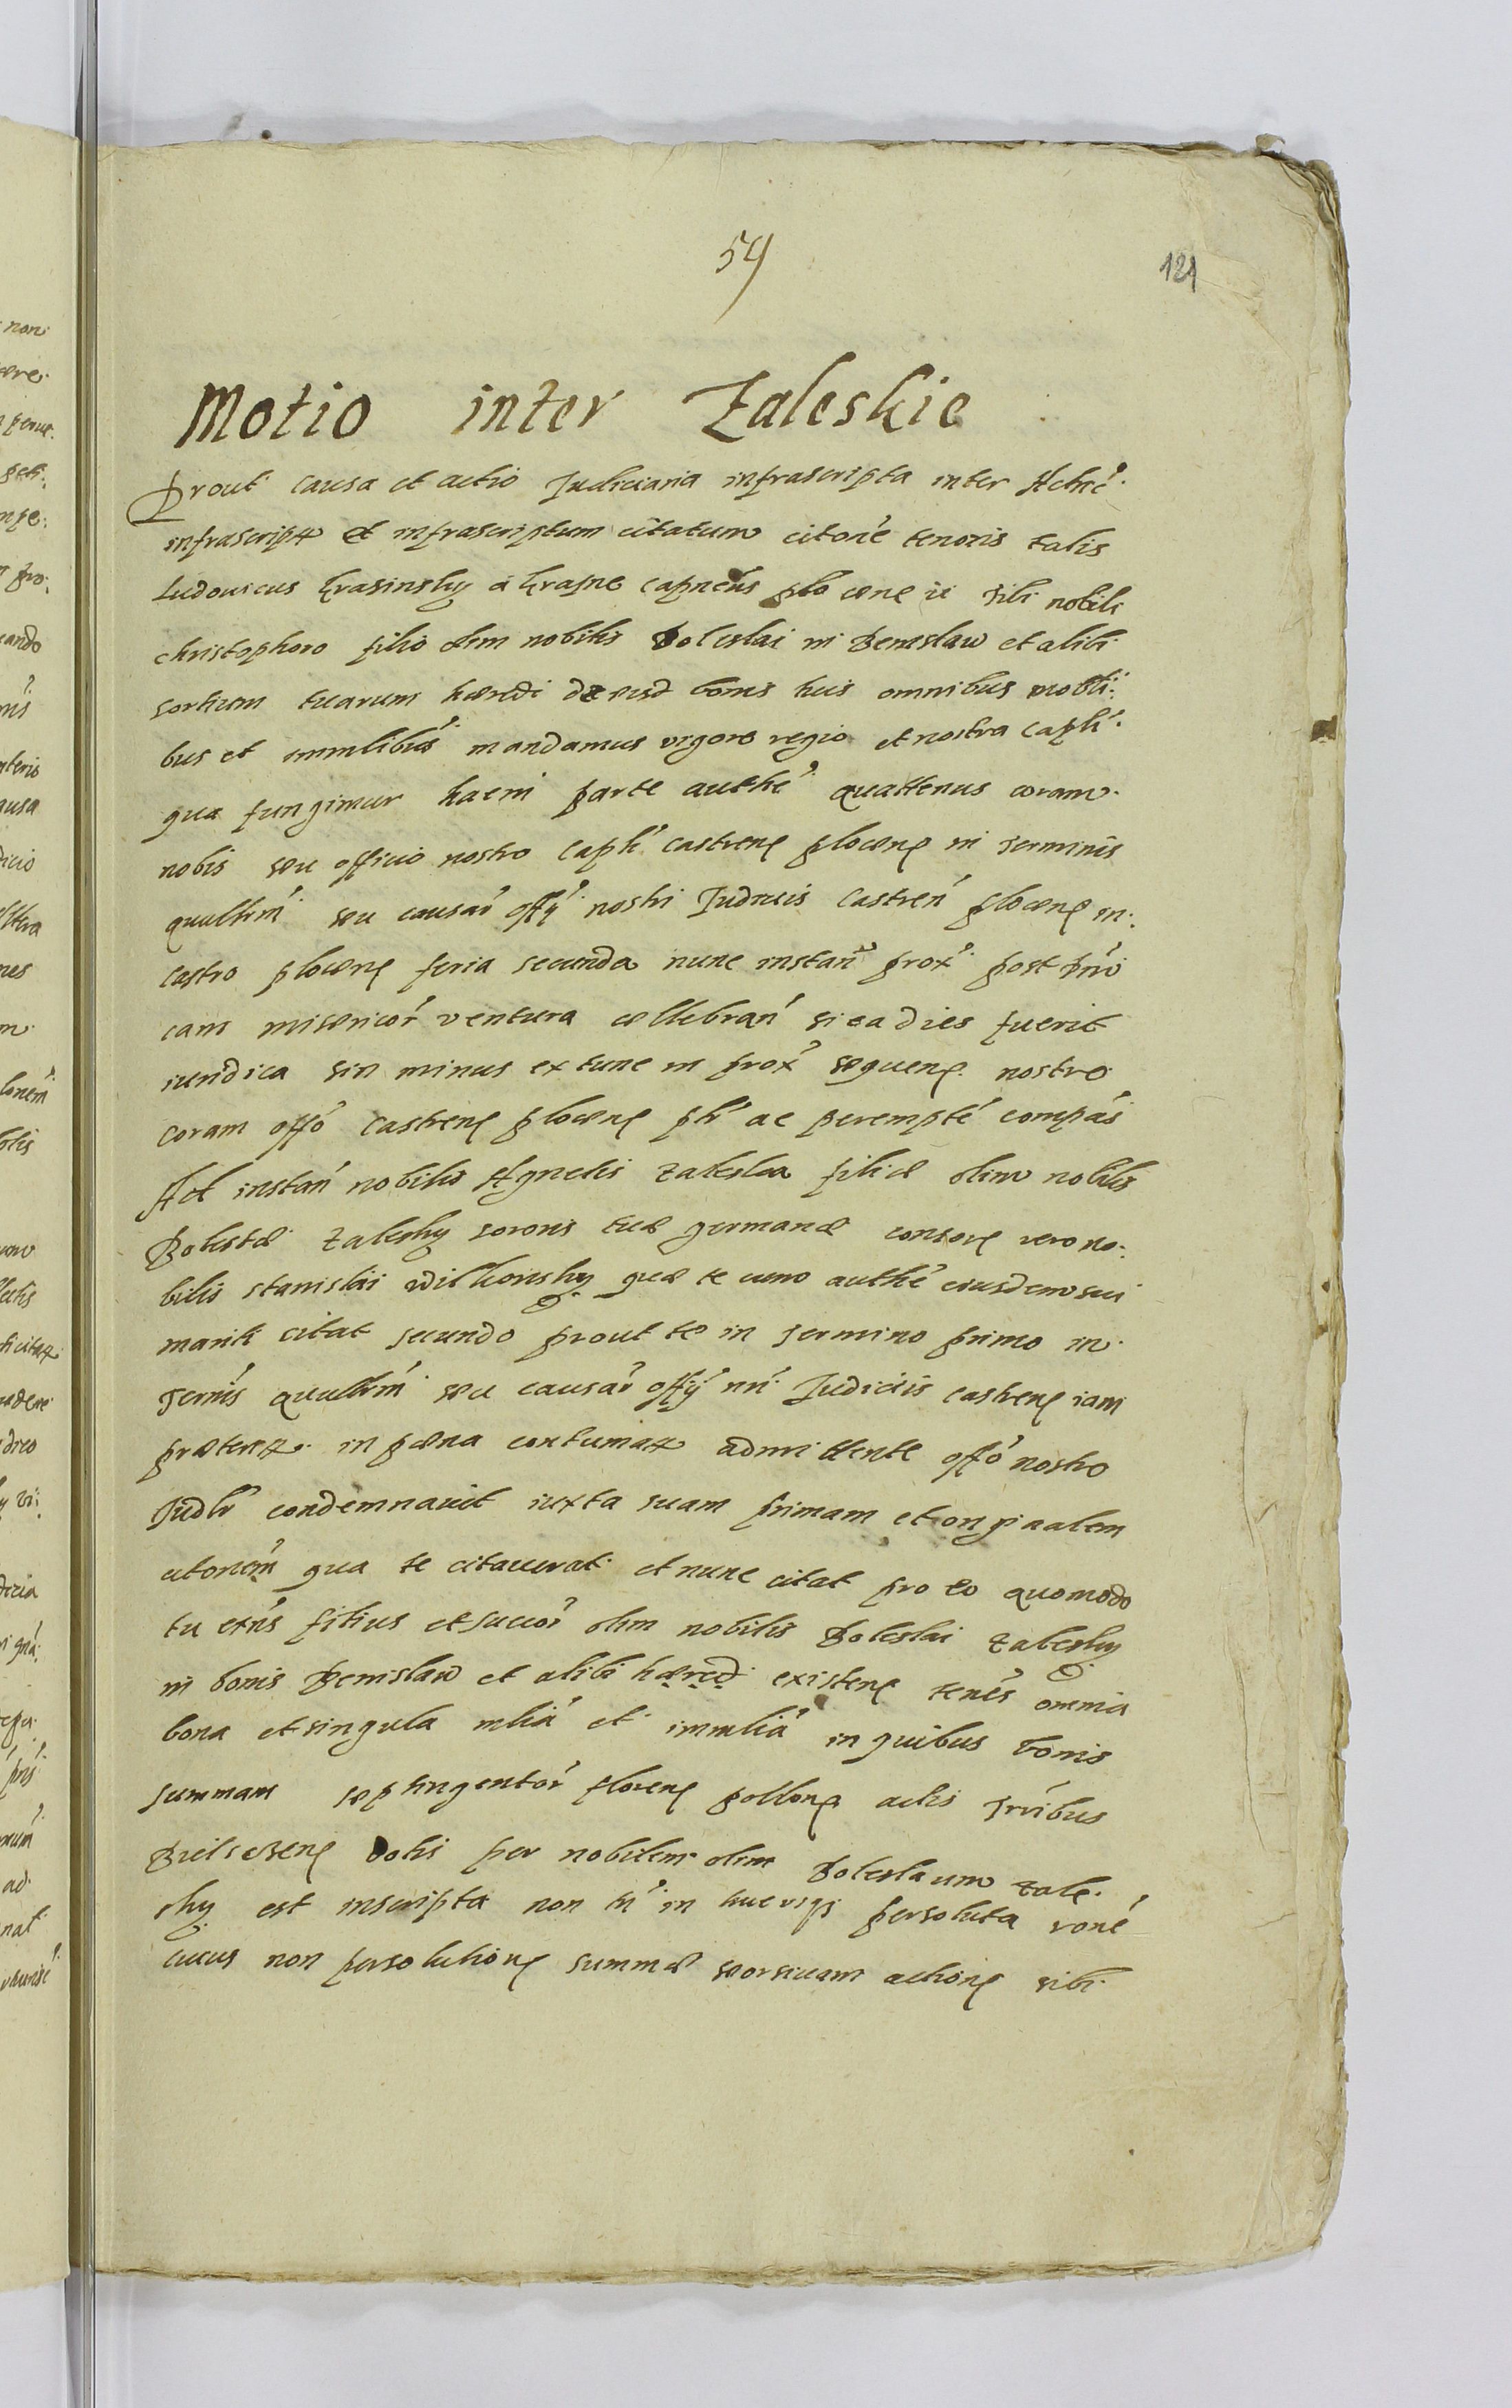 59
121
Motio inter Zaleskie
Prout causa et actio Judiciaria infrascripta inter Actrice
infrascript et infrascriptum citatum citone tenoris talis
Ludouicus Krasinsky a Krasne Capneus plocen tibi nobili
christophoro filio olim nobilis Boleslai in Bemslaw et alibi
sortium tuarum haeredi de eisd bonis tuis omnibus mobili:
bus et immlibus mandamus vigore regio et nostra Capli
qua fungimur hac in parte authe quattenus coram
nobis seu officio nostro Capli castren plocen in Terminis
quultm seu causar offy nostri Judicijs Castren plocen in
castro plocen feria secunda nunc instan prox post Dni
cam misericor ventura cellebran si ea dies fuerit
iuridica sin minus ex tunc in prox sequen nostro
coram offo castren plocen plr ac perempte compas
Ad instan nobilis Agnetis Zaleska filiae olim nobilis
Boleslai Zalesky sororis tuae germanae consors vero no:
bilis stanislai Wilkonsky quae te cum authe eiusdem sui
mariti citat secundo prout te in Termino primo in
Termis quultm seu causar offy nri Judiciis castren iam
praeterit in paena contumat admittente offo nostro
Judlr condemnauit iuxta suam primam et originalem
citonem qua te citauerat et nunc citat pro eo quomodo
tu exns filius et succor olim nobilis Boleslai Zalesky
in bonis Bemslaw et alibi haered existens tenes omnia
bona et singula mlia et immlia in quibus bonis
summam septingentor floren pollon actis Trribus
Bielscen dotis per nobilem olim Boleslaum Zale
sky est inscripta non tn in hucusqs persoluta rone
cuius non persolution summae seorsiuam action sibi